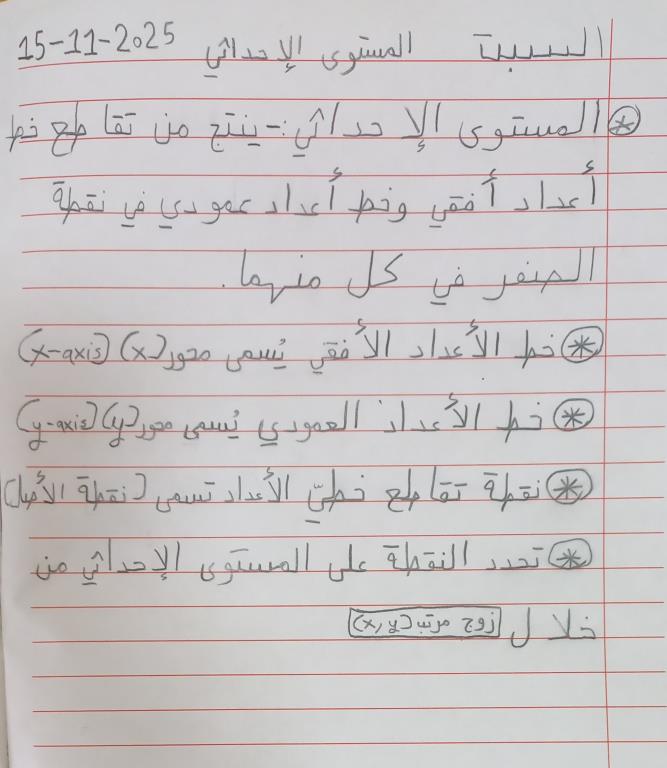 السبت المستوى الإحداثي 15-11-2025
* المستوى الإحداثي:- ينتج من تقاطع خط
أعداد أفقي وخط أعداد عمودي في نقطة
الصفر في كل منهما.
* خط الأعداد الأفقي يُسمى محور (x) (x-axis)
* خط الأعداد العمودي يُسمى محور (y) (y-axis)
* نقطة تقاطع خطيّ الأعداد تسمى (نقطة الأصل)
* تحدد النقطة على المستوى الإحداثي من
خلال زوج مرتب (x,y)